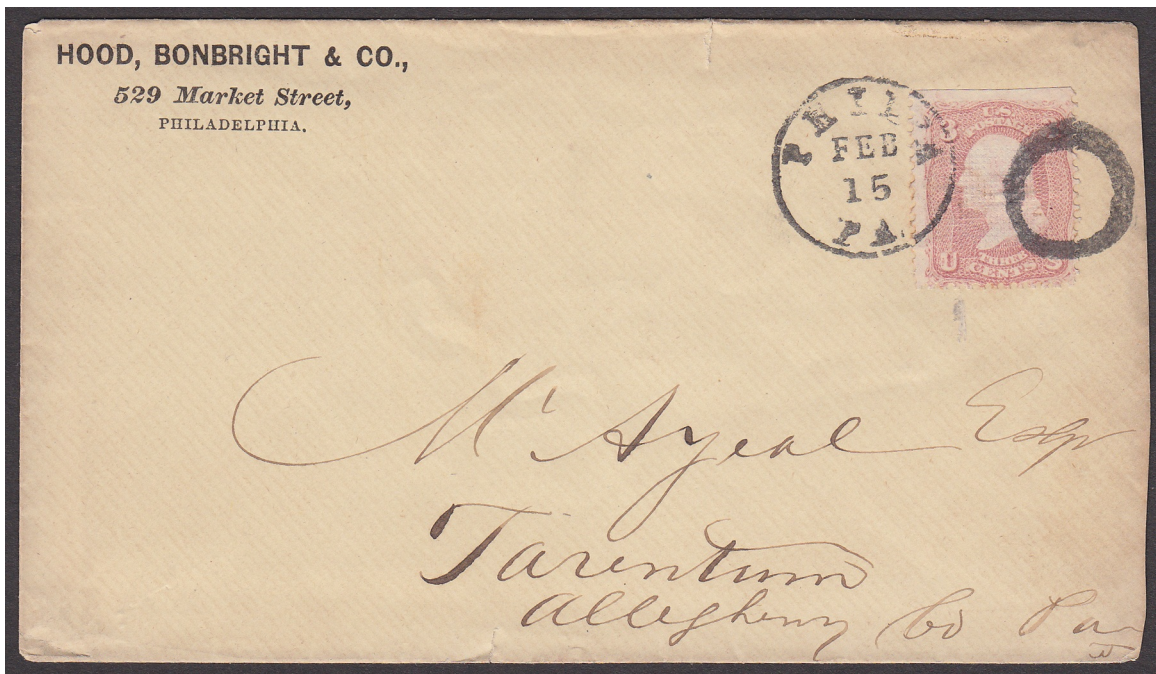 HOOD, BONBRIGHT & CO.,
529 Market Street,
PHILADELPHIA.
PHILA
FEB
15
PA
3
U.S.
U
THREE
CENTS
S
Esqr
Tarentum
Allegheny Co Pa